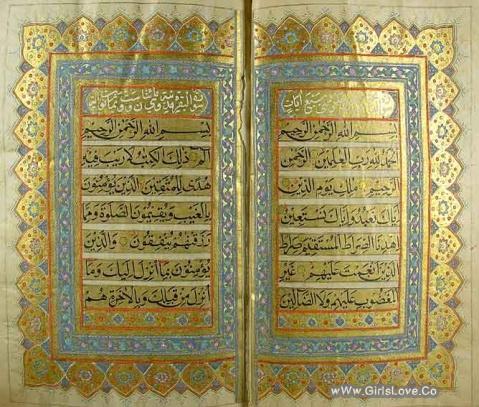 سبع آيات
بِسْمِ اللهِ الرَّحْمٰنِ الرَّحِيمِ
الْحَمْدُ لِلّٰهِ رَبِّ الْعٰلَمِينَ الرَّحْمٰنِ
الرَّحِيمِ مٰلِكِ يَوْمِ الدِّينِ
اِيَّاكَ نَعْبُدُ وَاِيَّاكَ نَسْتَعِينُ
اِهْدِنَا الصِّرَاطَ الْمُسْتَقِيمَ صِرَاطَ
الَّذِينَ اَنْعَمْتَ عَلَيْهِمْ غَيْرِ
الْمَغْضُوبِ عَلَيْهِمْ وَلَا الضَّالِّينَ
البقرة
بِسْمِ اللهِ الرَّحْمٰنِ الرَّحِيمِ
الم ذٰلِكَ الْكِتٰبُ لَا رَيْبَ فِيهِ
هُدًى لِلْمُتَّقِينَ الَّذِينَ يُؤْمِنُونَ
بِالْغَيْبِ وَيُقِيمُونَ الصَّلٰوةَ وَمِمَّا
رَزَقْنٰهُمْ يُنْفِقُونَ وَالَّذِينَ
يُؤْمِنُونَ بِمَا اُنْزِلَ اِلَيْكَ وَمَا
اُنْزِلَ مِنْ قَبْلِكَ وَبِالْاٰخِرَةِ هُمْ
www.GirlsLove.Co